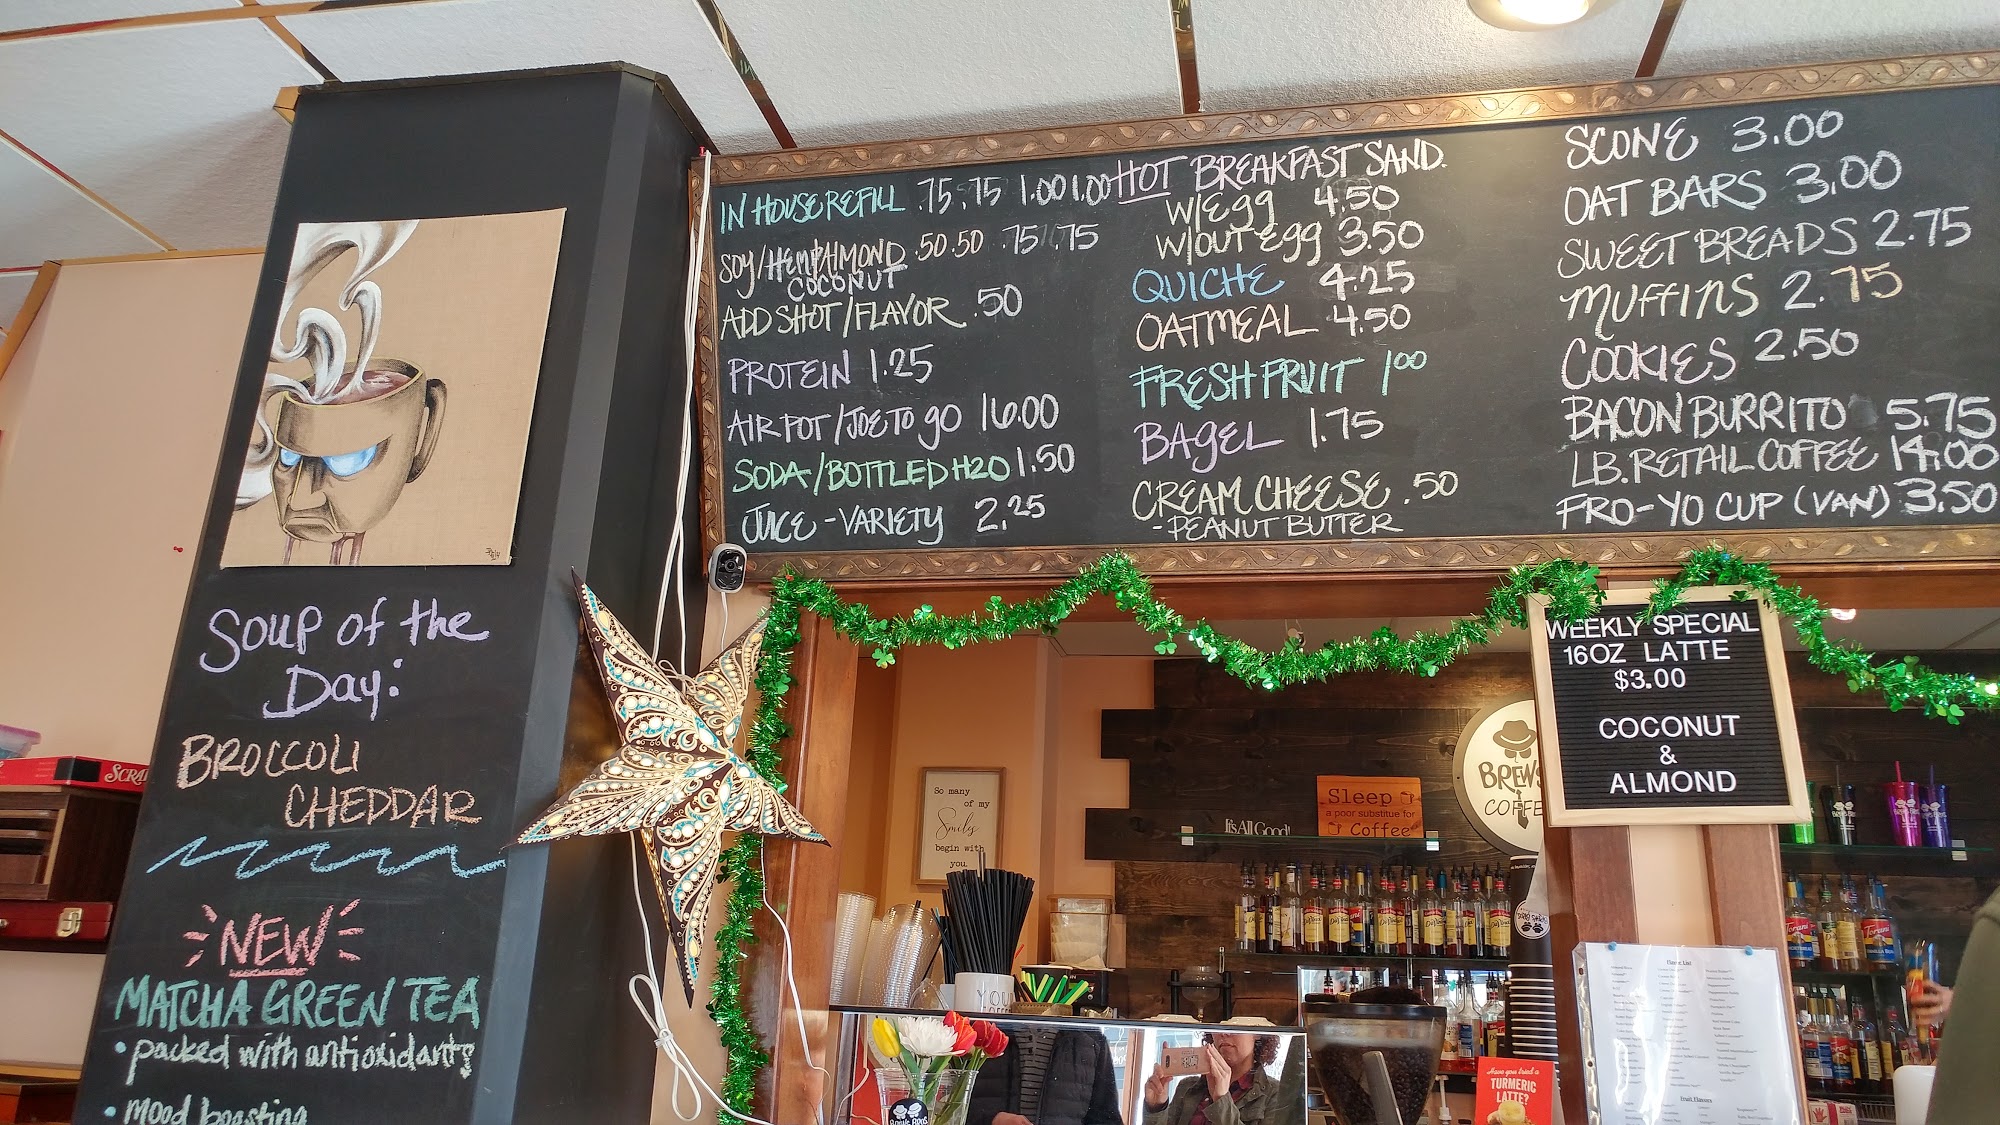 Soup of the
Day:
BROCCOLI
CHEDDAR
NEW
MATCHA GREEN TEA
• packed with antioxidants
• mood boosting
IN HOUSE REFILL .75 .75 1.00 1.00
SOY/HEMP/ALMOND .50 .50 .75 .75
COCONUT
ADD SHOT/FLAVOR .50
PROTEIN 1.25
AIR POT/JOE TO GO 16.00
SODA/BOTTLED H2O 1.50
JUICE - VARIETY 2.25
HOT BREAKFAST SAND.
W/EGG 4.50
W/OUT EGG 3.50
QUICHE 4.25
OATMEAL 4.50
FRESH FRUIT 1.00
BAGEL 1.75
CREAM CHEESE .50
- PEANUT BUTTER
SCONE 3.00
OAT BARS 3.00
SWEET BREADS 2.75
MUFFINS 2.75
COOKIES 2.50
BACON BURRITO 5.75
LB. RETAIL COFFEE 14.00
FRO-YO CUP (VAN) 3.50
WEEKLY SPECIAL
16OZ LATTE
$3.00
COCONUT
&
ALMOND
So many
of my
Smiles
begin with
you
It's All Good!
Sleep
a poor substitue for
Coffee
BREWS
COFFE
SCRA
YOU
Torani
Torani
Flavor List
Fruit Flavors
Have you tried a
TURMERIC
LATTE?